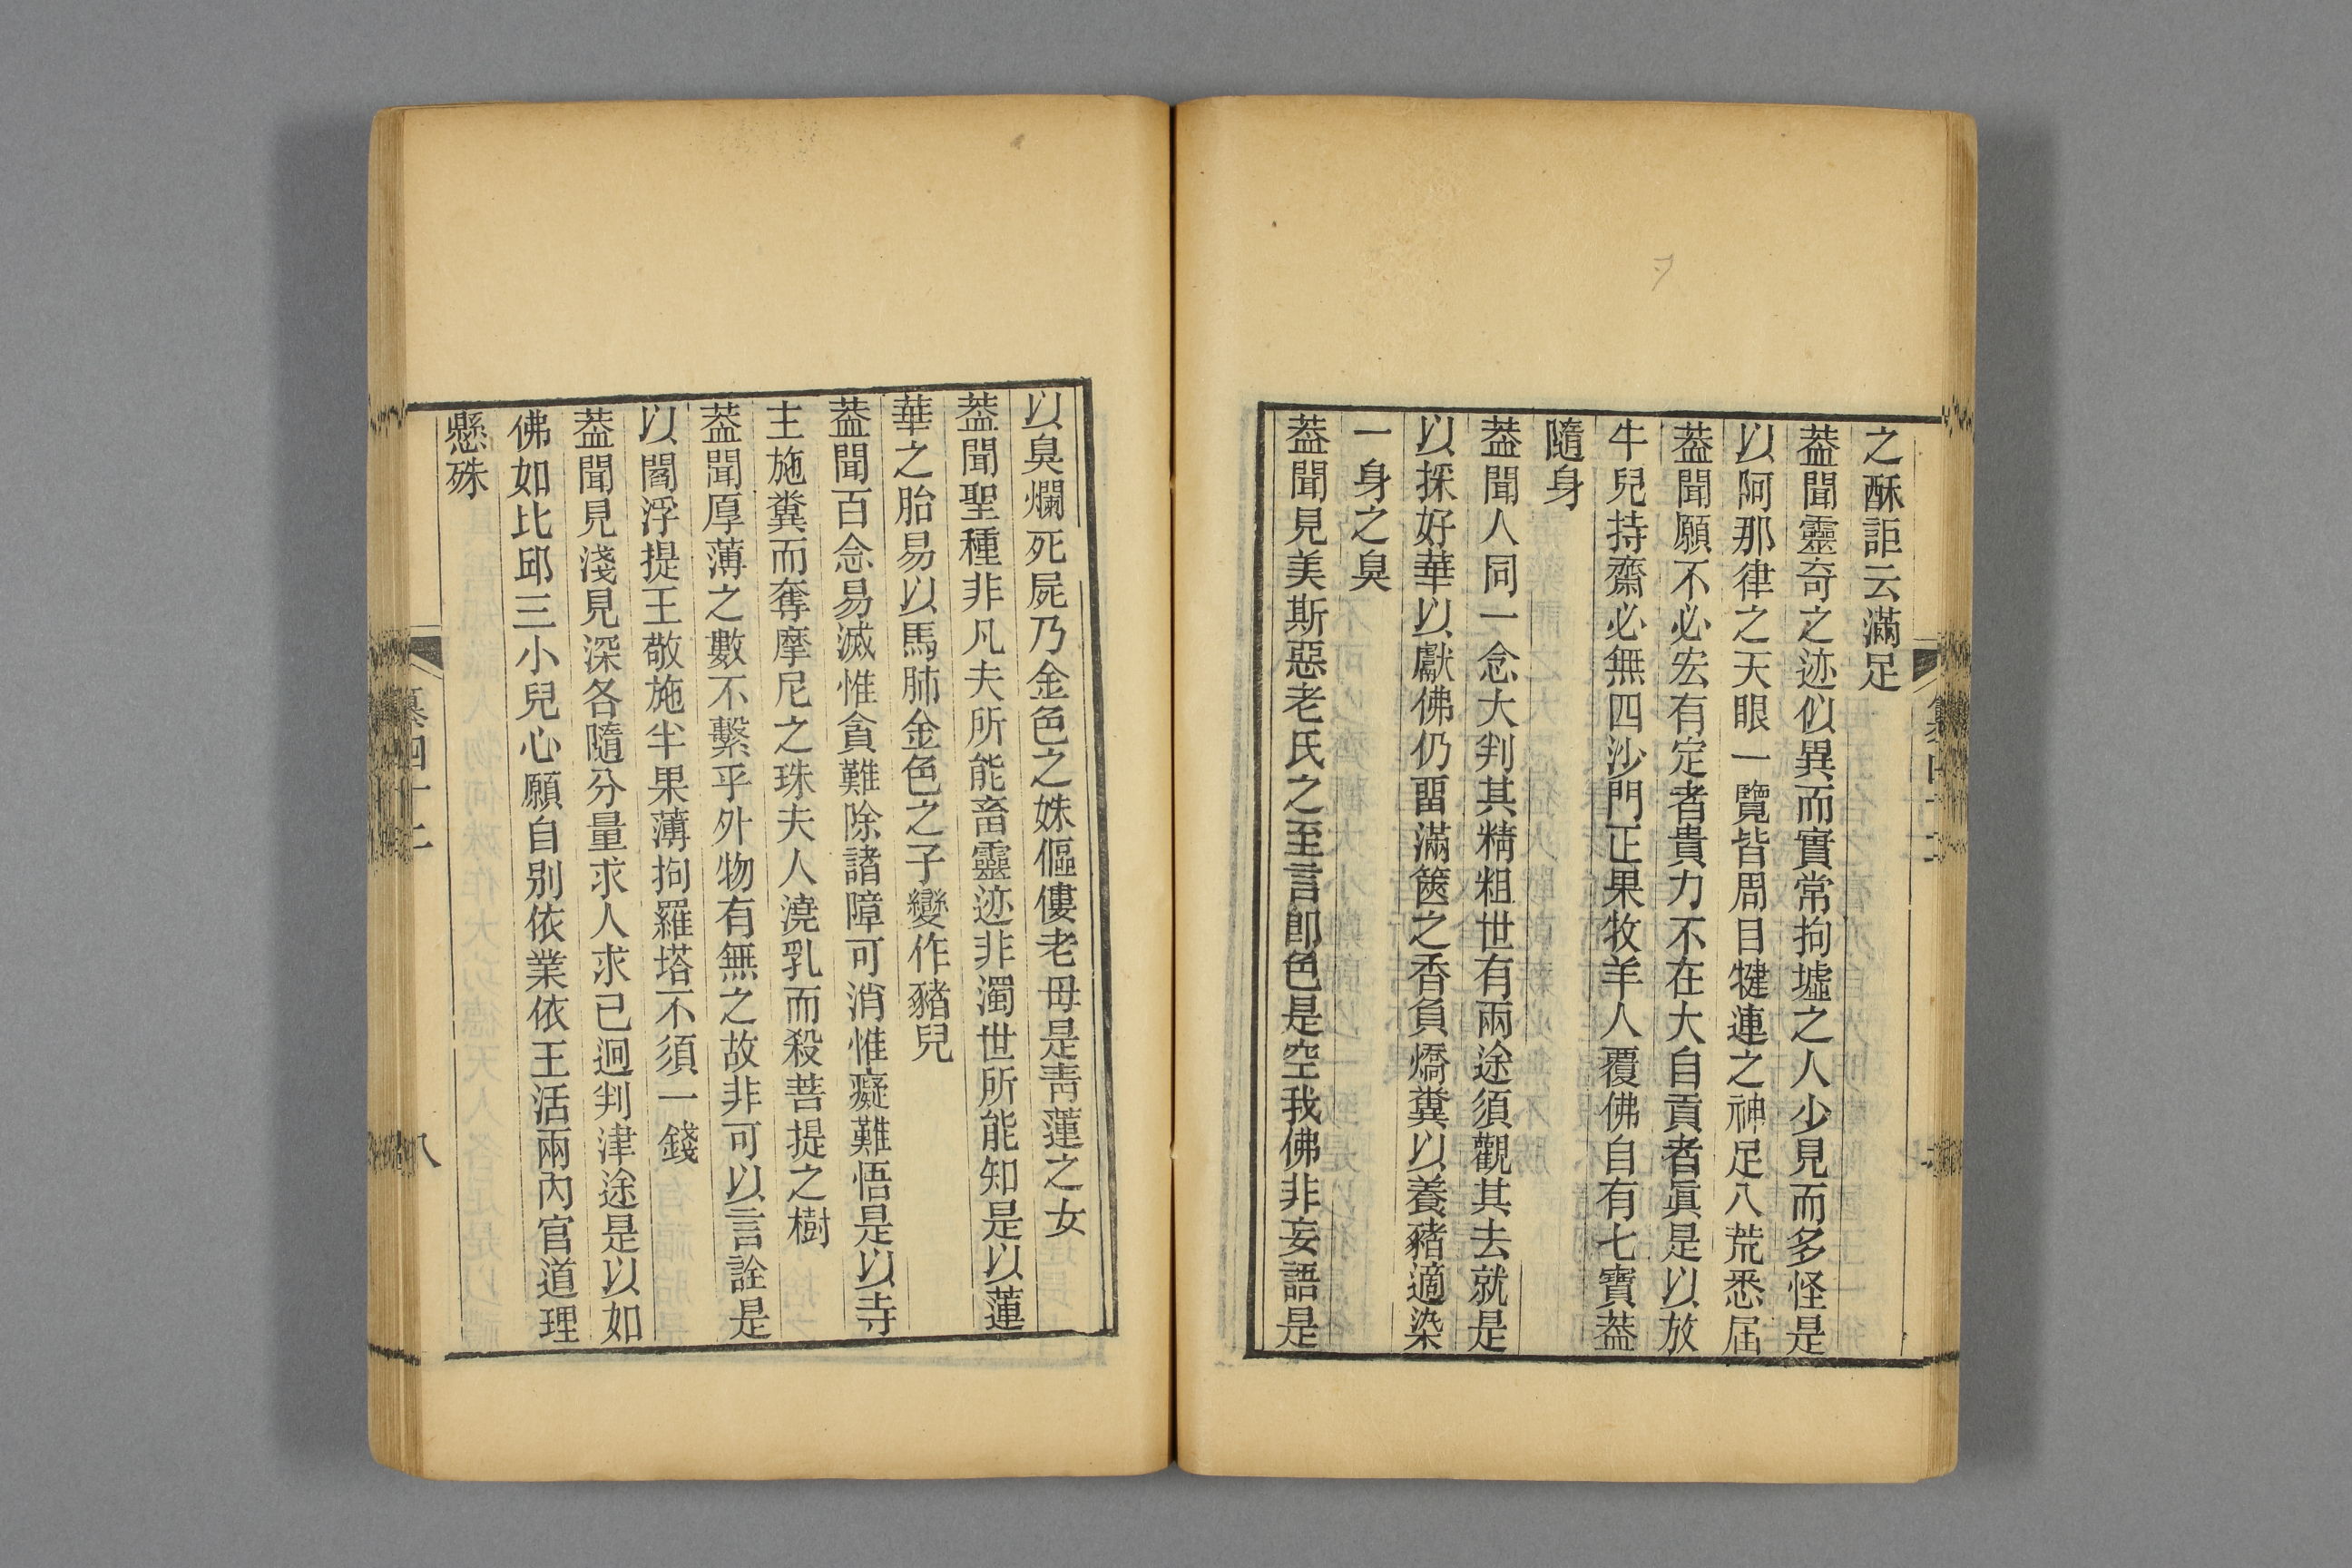 之酥詎云滿足
葢聞靈奇之迹似異而實常拘墟之人少見而多怪是
以阿那律之天眼一覽皆周目犍連之神足八荒悉屆
葢聞願不必宏有定者貴力不在大自貢者眞是以放
牛兒持齋必無四沙門正果牧羊人覆佛自有七寶葢
隨身
葢聞人同一念大判其精粗世有兩途須觀其去就是
以採好華以獻佛仍畱滿篋之香負燆糞以養豬適染
一身之臭
葢聞見美斯惡老氏之至言卽色是空我佛非妄語是
以臭爛死屍乃金色之姝傴僂老母是靑蓮之女
葢聞聖種非凡夫所能畜靈迹非濁世所能知是以蓮
華之胎易以馬肺金色之子變作豬兒
葢聞百念易滅惟貪難除諸障可消惟癡難悟是以寺
主施糞而奪摩尼之珠夫人澆乳而殺菩提之樹
葢聞厚薄之數不繫乎外物有無之故非可以言詮是
以閻浮提王敬施半果薄拘羅塔不須一錢
葢聞見淺見深各隨分量求人求己迥判津途是以如
佛如比邱三小兒心願自別依業依王活兩內官道理
懸殊
四十二
八